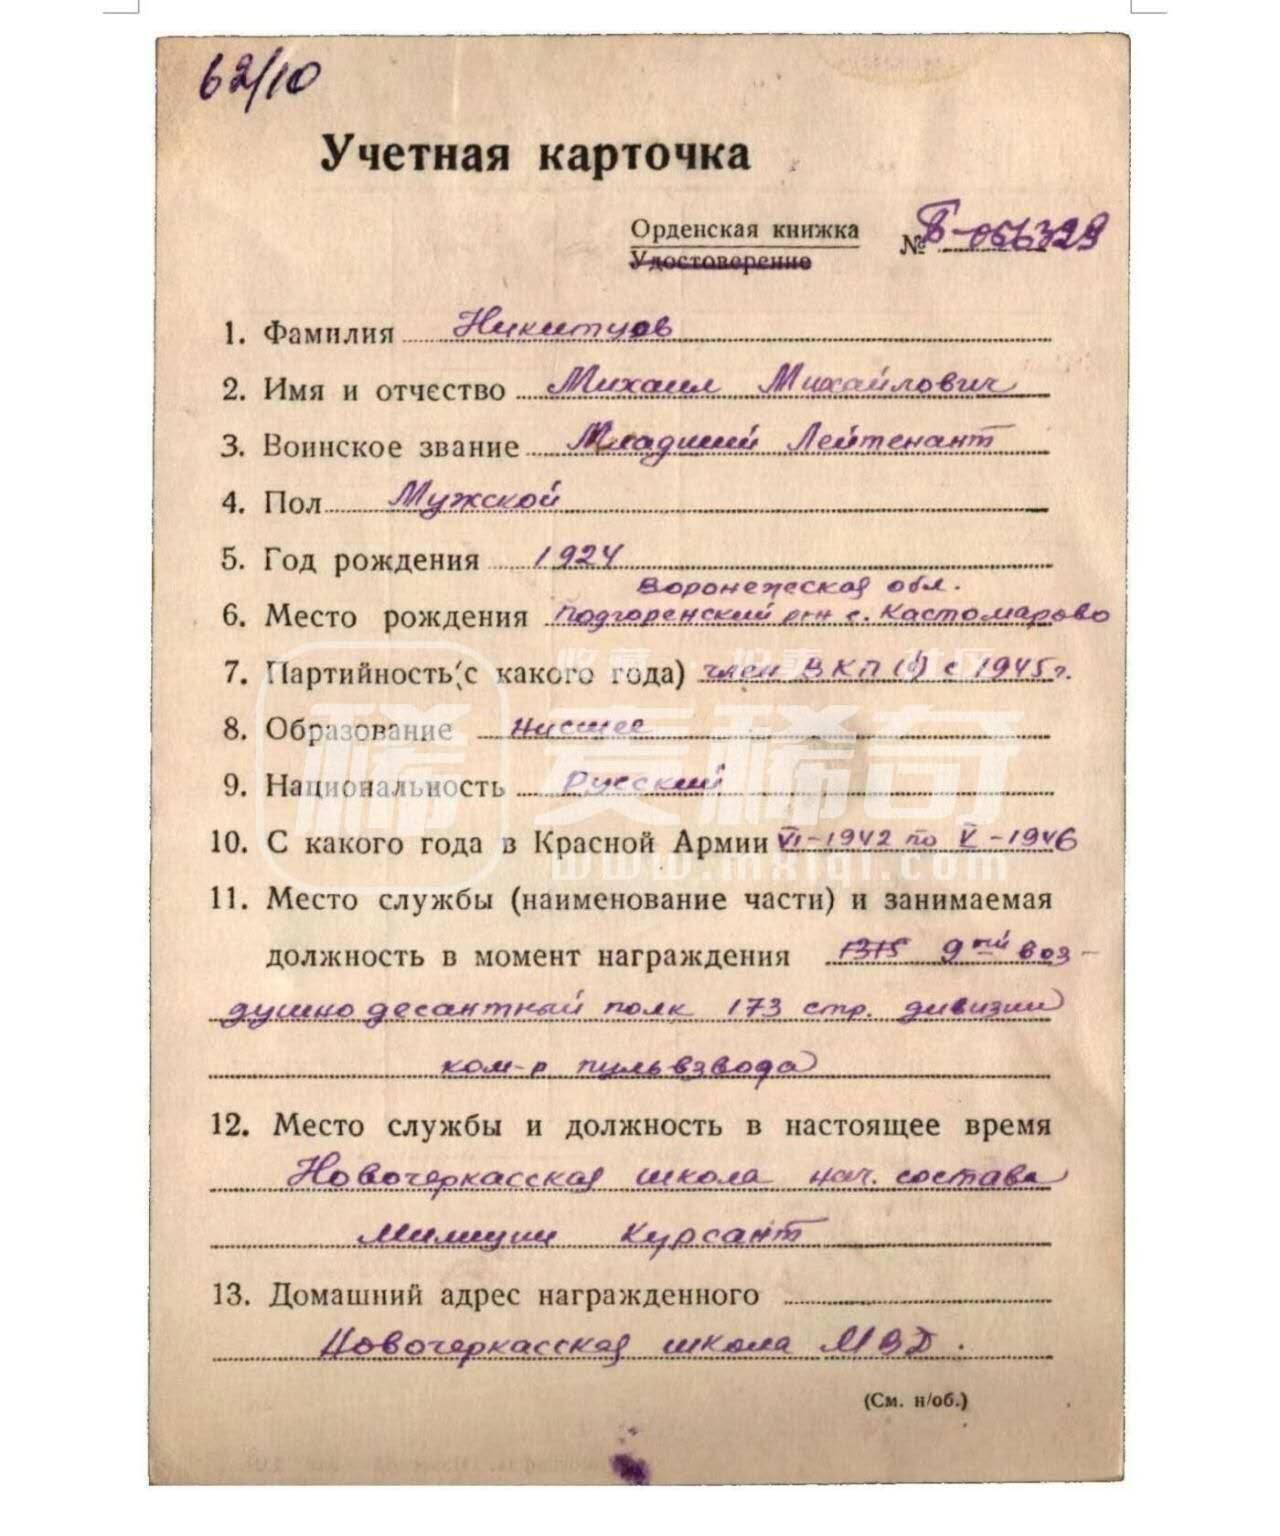 62/10
Учетная карточка
Орденская книжка
Удостоверение
№ Б-066329
1. Фамилия Никитцов
2. Имя и отчество Михаил Михайлович
3. Воинское звание Младший Лейтенант
4. Пол Мужской
5. Год рождения 1924
Воронежская обл.
6. Место рождения Подгоренский с. Кастомарово
7. Партийность (с какого года) член ВКП(б) с 1945 г.
收藏 · 投卖 · 社区
8. Образование низшее
稀 麦稀奇
9. Национальность Русский
10. С какого года в Красной Армии VI-1942 по V-1946
www.mxiqi.com
11. Место службы (наименование части) и занимаемая
должность в момент награждения 1315 9ый воз-
душно десантный полк 173 стр. дивизии
ком-р пульвзвода
12. Место службы и должность в настоящее время
Новочеркасская школа нач. состава
Милиции Курсант
13. Домашний адрес награжденного
Новочеркасская школа МВД.
(См. н/об.)